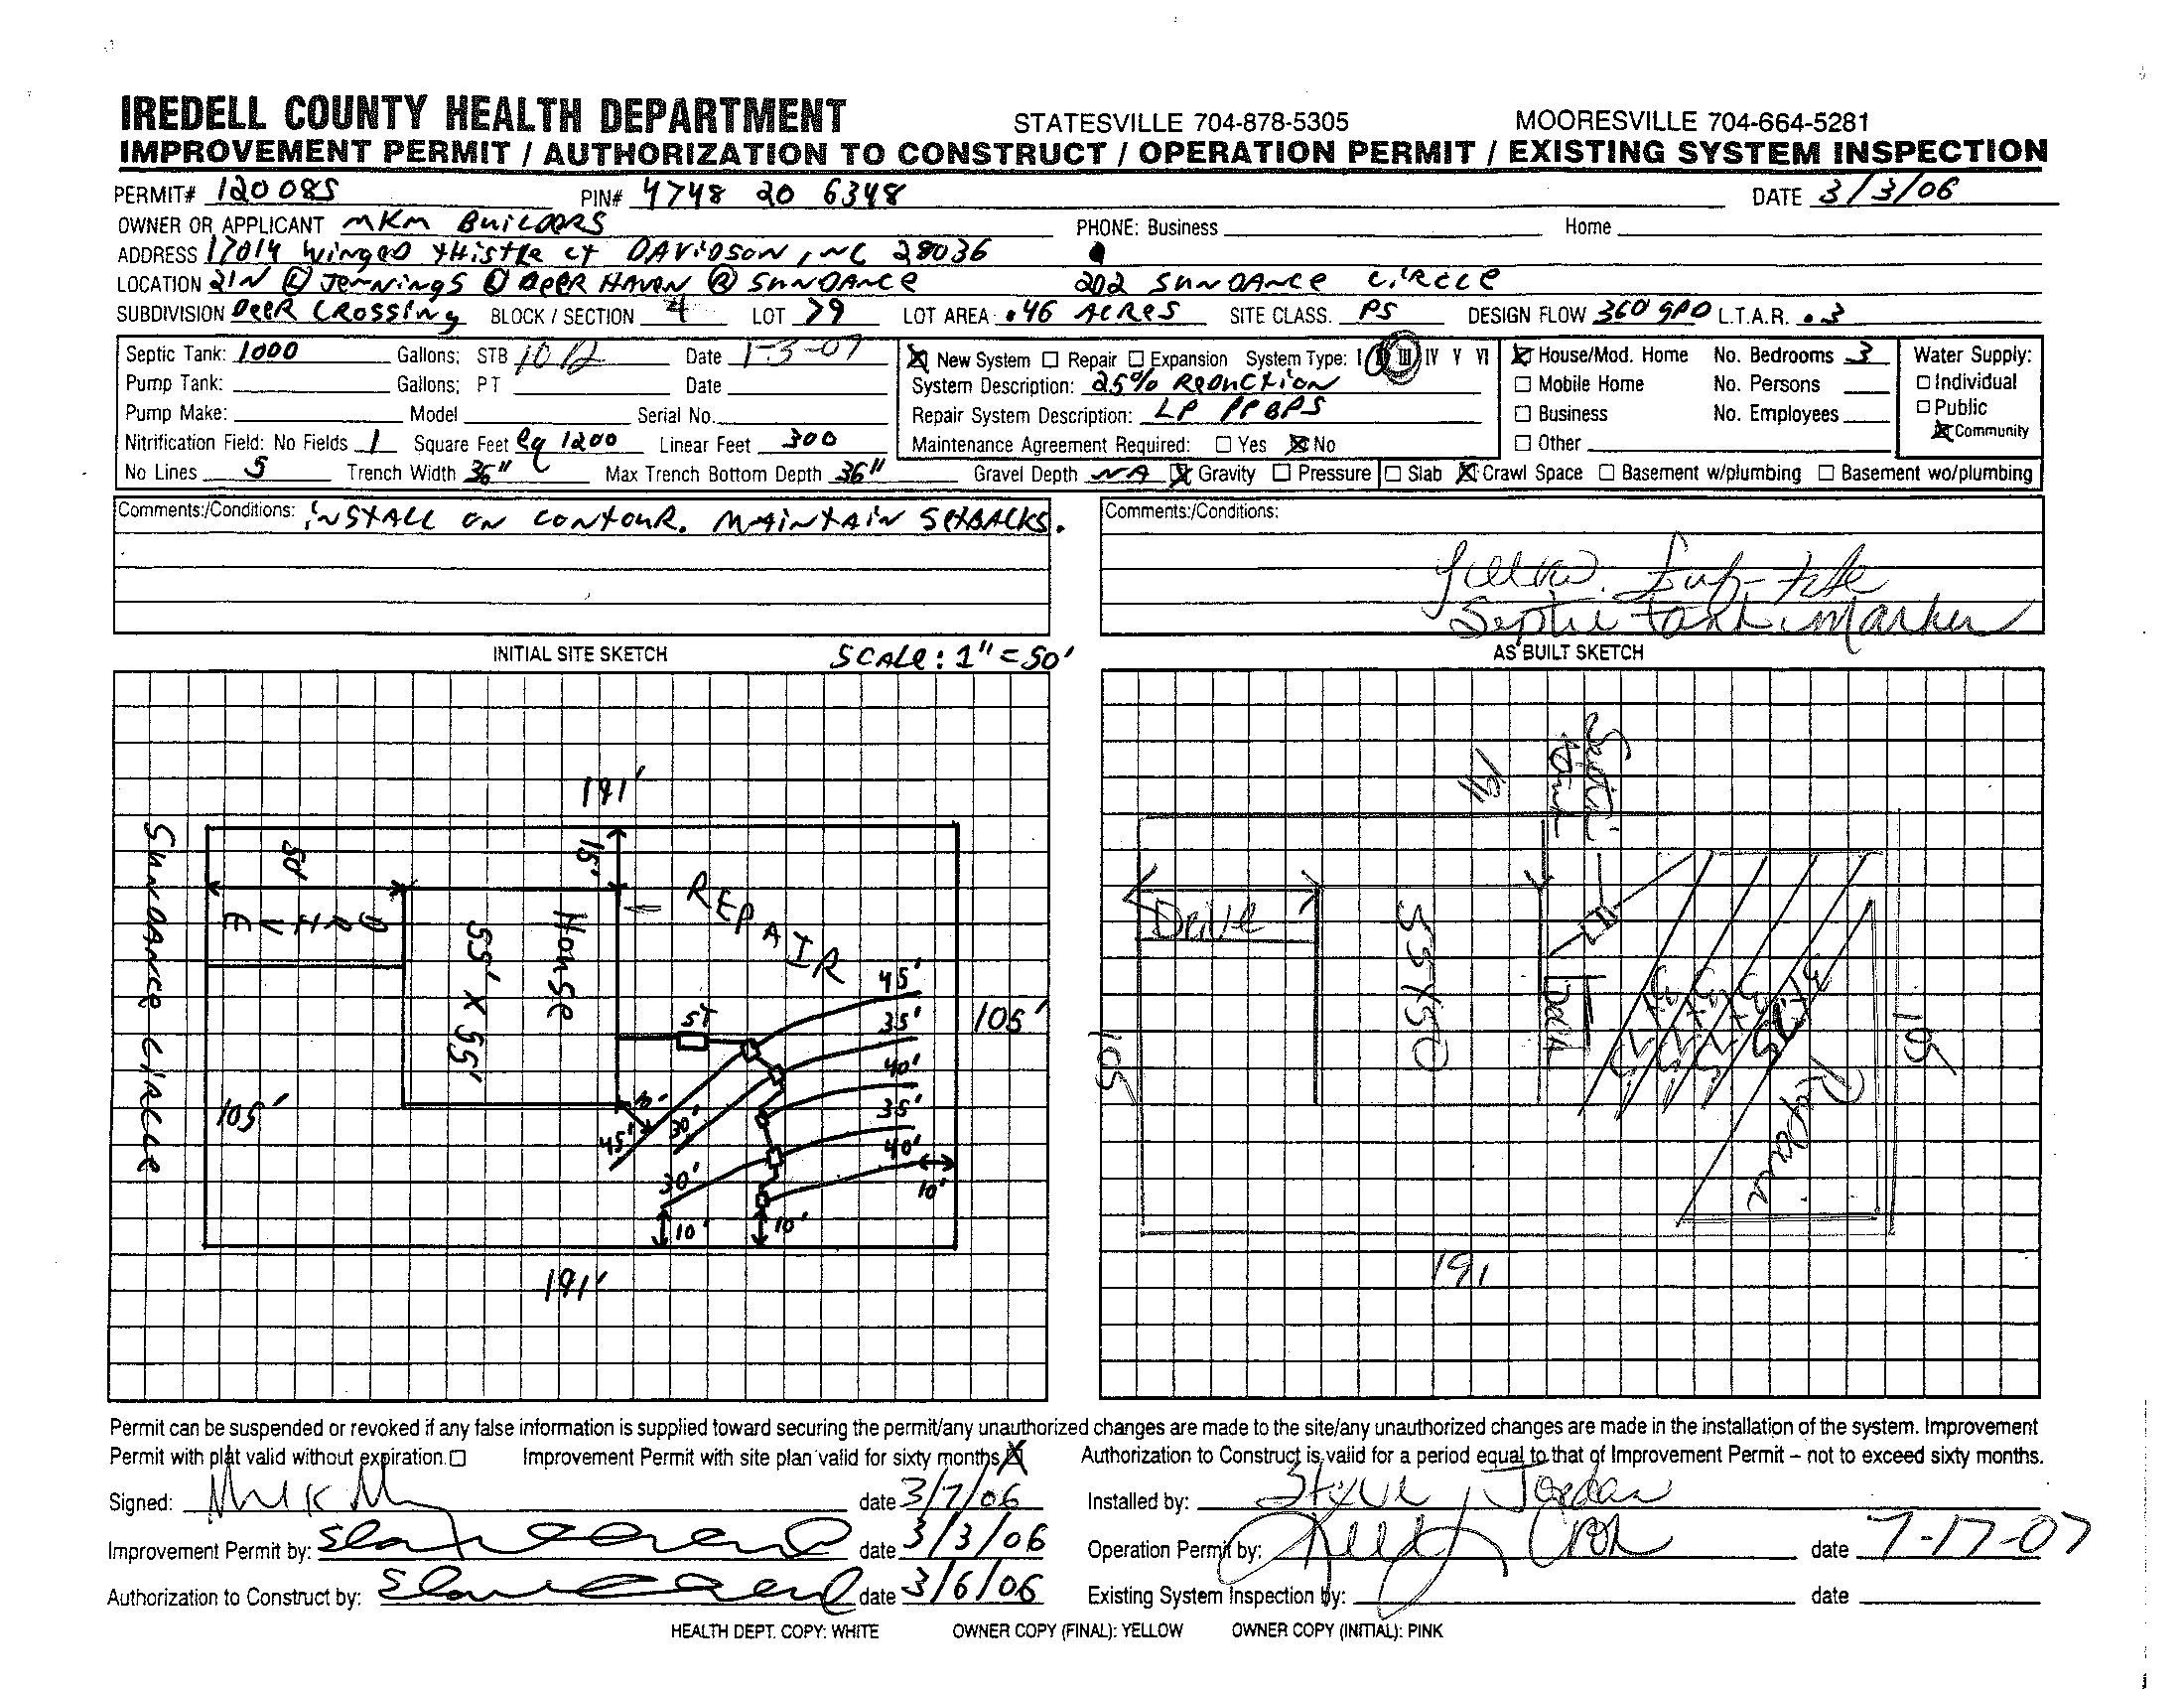 IREDELL COUNTY HEALTH DEPARTMENT STATESVILLE 704-878-5305 MOORESVILLE 704-664-5281
IMPROVEMENT PERMIT / AUTHORIZATION TO CONSTRUCT / OPERATION PERMIT / EXISTING SYSTEM INSPECTION
PERMIT# 120085 PIN# 4748 20 6348 DATE 3/3/06
OWNER OR APPLICANT MKM BuilDORS PHONE: Business Home
ADDRESS 17014 Winged thistle ct DAVIDSON, NC 28036
LOCATION 21N Ⓛ Jennings Ⓛ Deer Haven Ⓡ SunDance 202 SunDance Circle
SUBDIVISION Deer Crossing BLOCK / SECTION 4 LOT 79 LOT AREA .46 Acres SITE CLASS. PS DESIGN FLOW 360 gPD L.T.A.R. .3
Septic Tank: 1000 Gallons; STB Date 1-3-07 New System Repair Expansion System Type: I II III IV V VI House/Mod. Home No. Bedrooms 3 Water Supply:
Pump Tank: Gallons; PT Date System Description: 25% Reduction Mobile Home No. Persons Individual
Pump Make: Model Serial No. Repair System Description: LP PPBPS Business No. Employees Public
Nitrification Field: No Fields 1 Square Feet eq 1200 Linear Feet 300 Maintenance Agreement Required: Yes No Other Community
No Lines 5 Trench Width 36" Max Trench Bottom Depth 36" Gravel Depth NA Gravity Pressure Slab Crawl Space Basement w/plumbing Basement wo/plumbing
Comments:/Conditions: INSTALL ON CONTOUR. MAINTAIN SetBACKS. Comments:/Conditions:
Yellow
Septic tank marker
INITIAL SITE SKETCH SCALe: 1" = 50' AS BUILT SKETCH
191'
SunDance Circle
50'
DRIVE
15'
House
55' X 55'
REPAIR
ST
45'
35'
40'
35'
40'
105'
105'
10'
45'
30'
30'
10'
10'
10'
191'
191
Septic tank
Drive
55X50
Deck
Repair
105
105
191
Permit can be suspended or revoked if any false information is supplied toward securing the permit/any unauthorized changes are made to the site/any unauthorized changes are made in the installation of the system. Improvement
Permit with plat valid without expiration. Improvement Permit with site plan valid for sixty months Authorization to Construct is valid for a period equal to that of Improvement Permit – not to exceed sixty months.
Signed: date 3/7/06 Installed by: Steve Jordan
Improvement Permit by: date 3/3/06 Operation Permit by: date 7-17-07
Authorization to Construct by: date 3/6/06 Existing System Inspection by: date
HEALTH DEPT. COPY: WHITE OWNER COPY (FINAL): YELLOW OWNER COPY (INITIAL): PINK